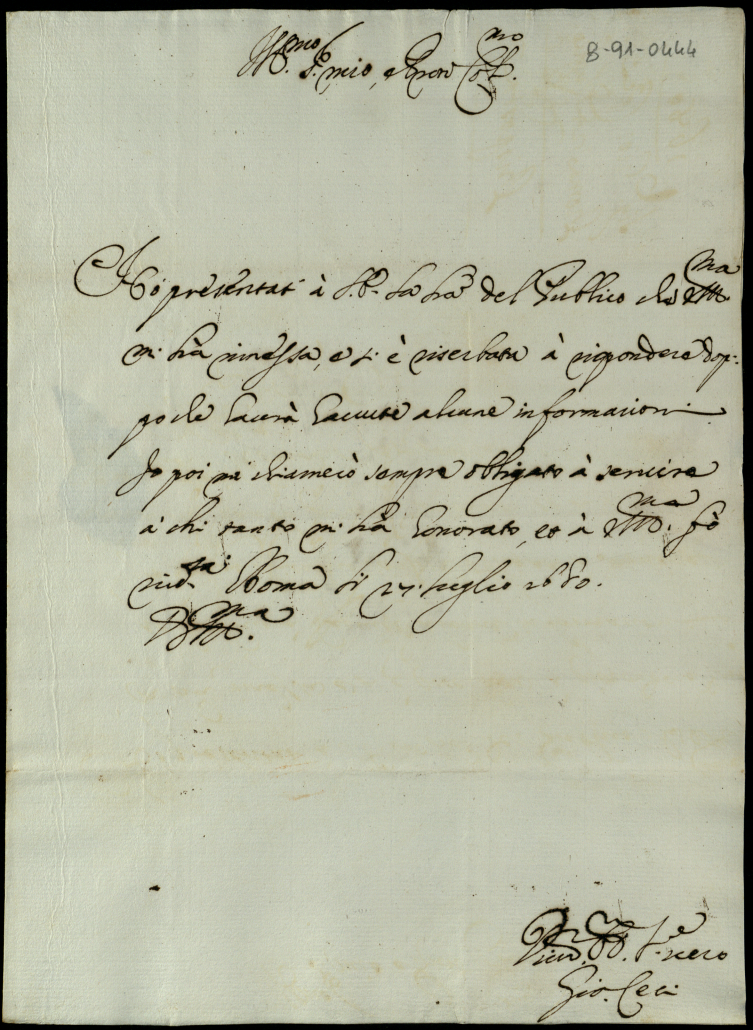 B-91-0444
Ill.mo S.r mio, e Pron Coll.mo
Hò presentat' à S.B. la l'ra del Publico che VS Ill.ma
m' hà rimessa, e si è riserbata à rispondere dop-
po che haurà hauute alcune informationi.
Io poi mi chiamerò sempre obligato à seruire
à chi tanto m' hà honorato, et à VS Ill.ma fò
riu.za Roma li 27 luglio 1680.
VS Ill.ma
S.re uero
Gio. Ceci